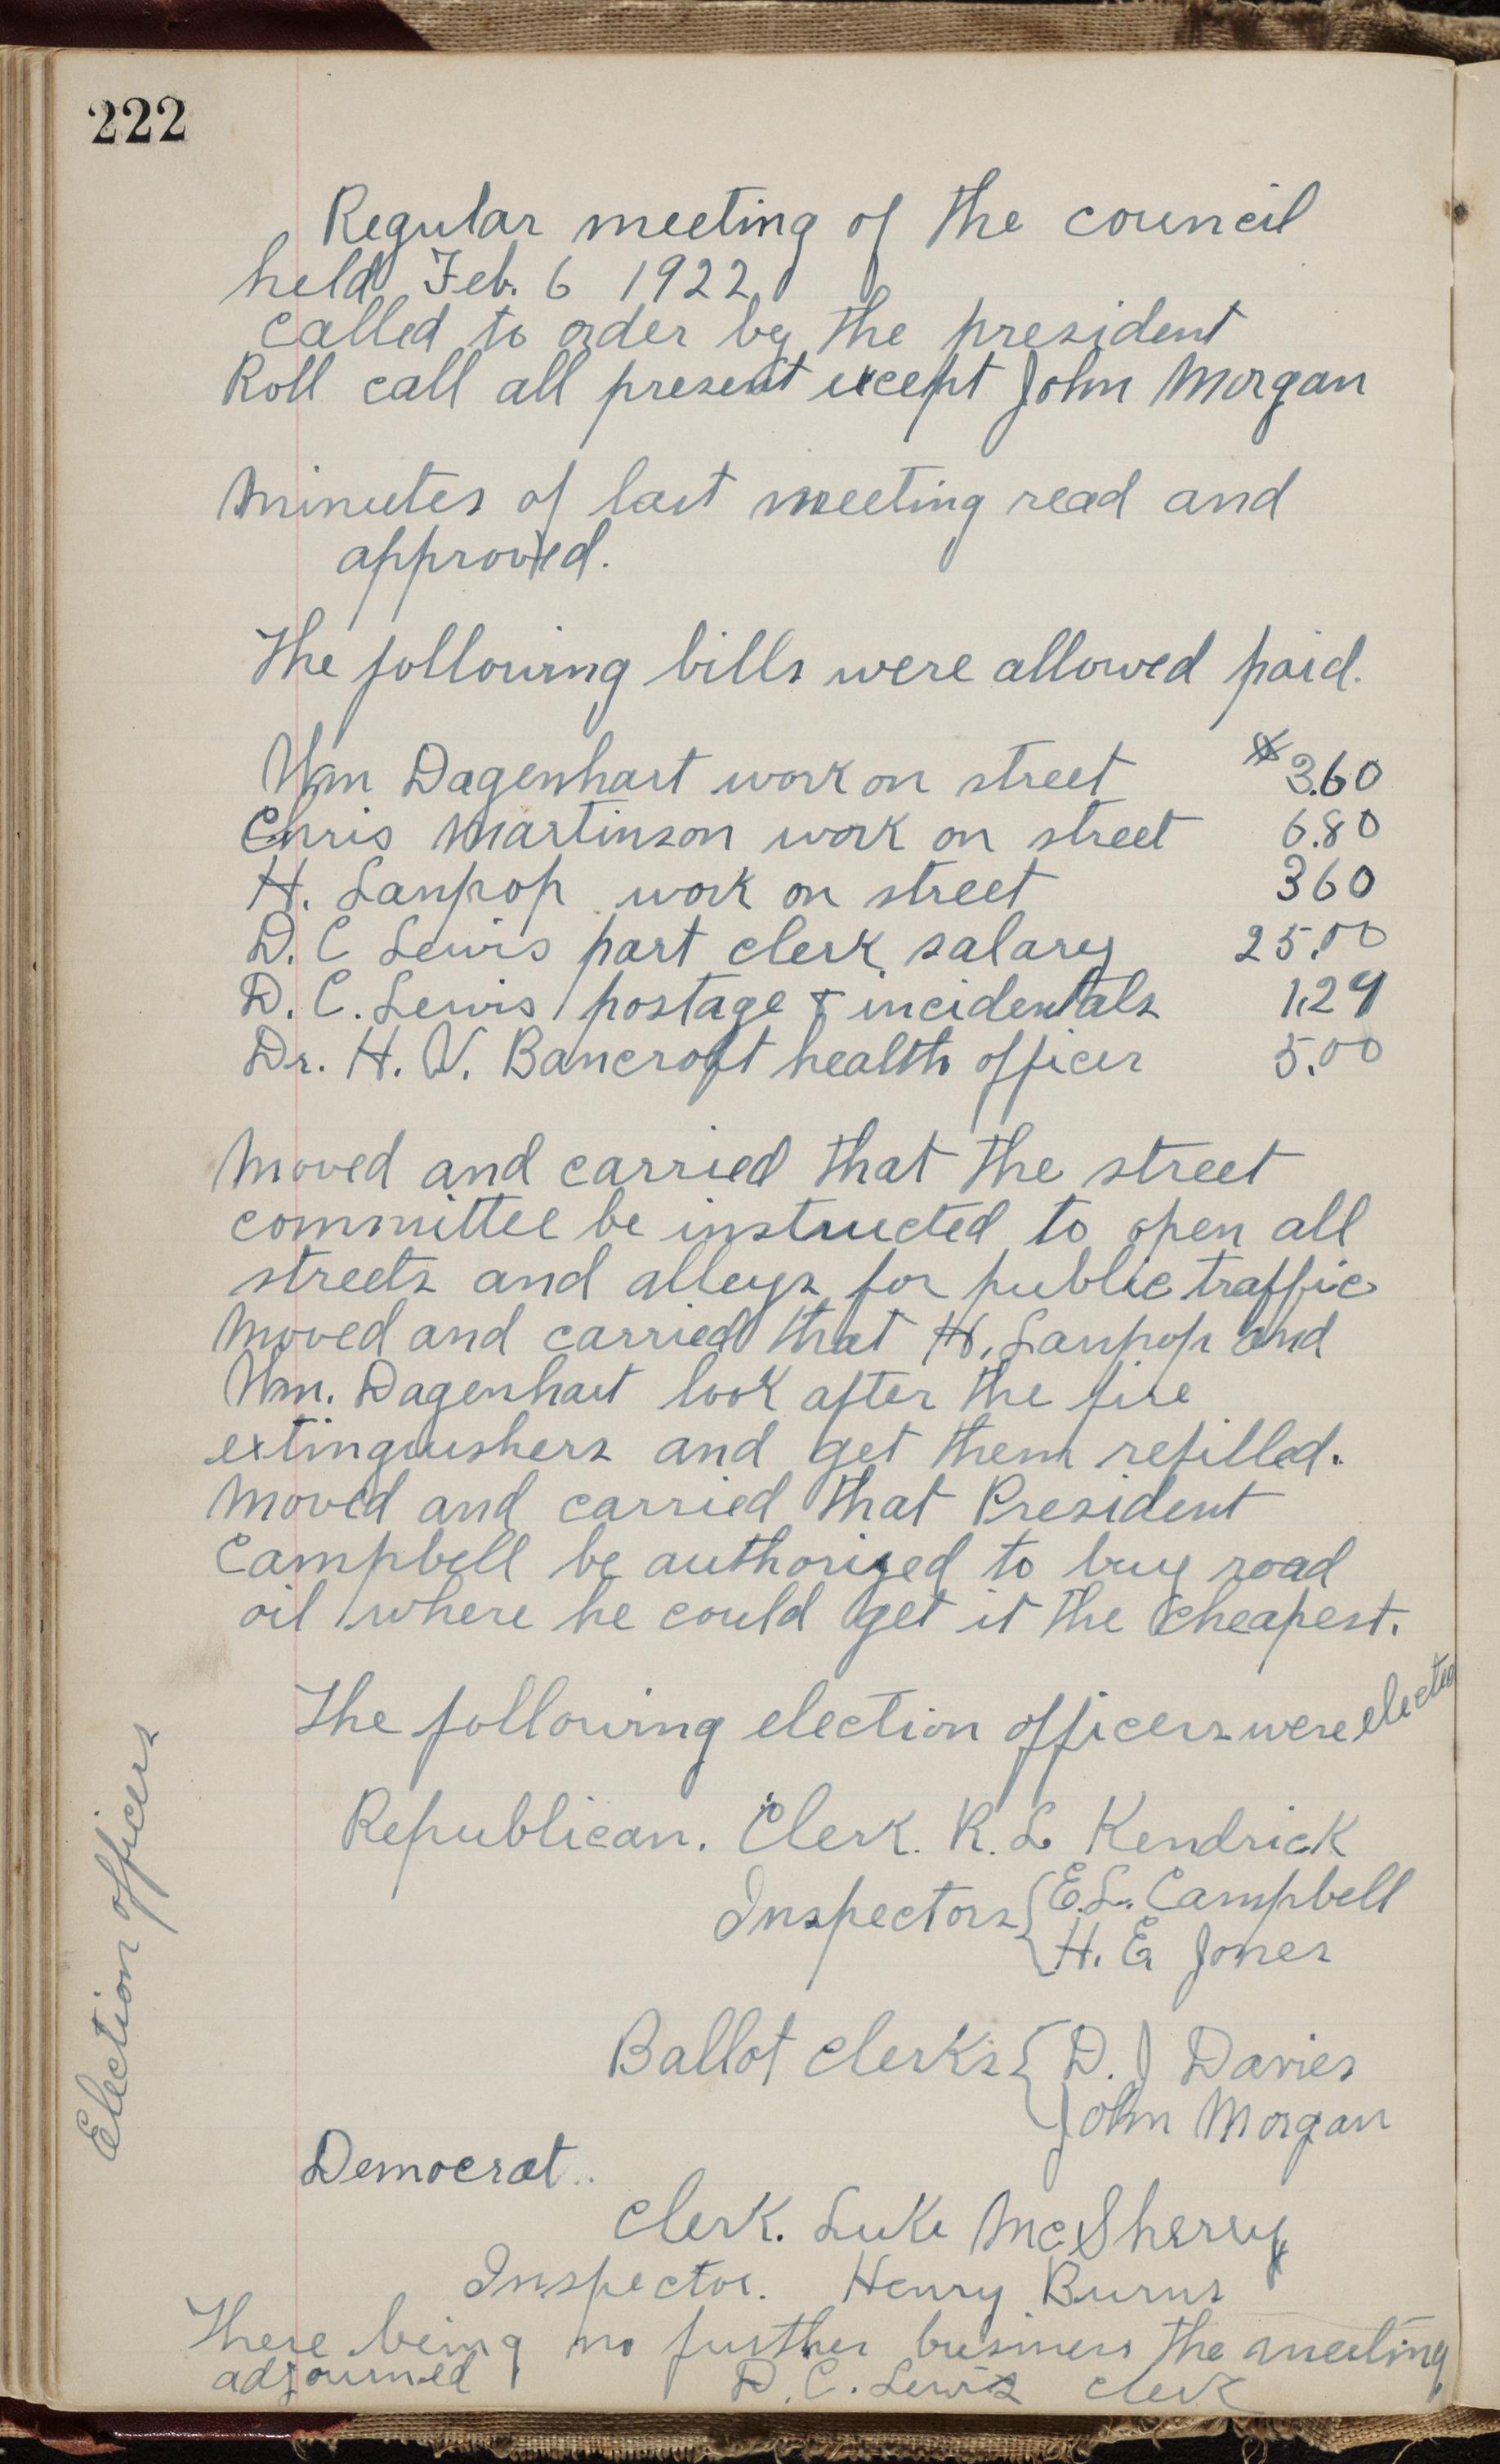 222
Regular meeting of the council
held Feb. 6 1922
called to order by the president
Roll call all present except John Morgan
Minutes of last meeting read and
approved.
The following bills were allowed paid.
Wm Dagenhart work on street $3.60
Chris Martinson work on street 6.80
H. Lanpop work on street 360
D. C Lewis part clerk salary 25.00
D. C. Lewis postage & incidentals 1.29
Dr. H. V. Bancroft health officer 5.00
Moved and carried that the street
committee be instructed to open all
streets and alleys for public traffic
Moved and carried that H. Lanpop and
Wm. Dagenhart look after the fire
extinguishers and get them refilled.
Moved and carried that President
Campbell be authorized to buy road
oil where he could get it the cheapest.
The following election officers were elected
Republican. Clerk. R. L Kendrick
Inspectors { E. L. Campbell
H. E Jones
Ballot clerks { D. J Davies
John Morgan
Election officers
Democrat.
Clerk. Luke McSherry
Inspector. Henry Burns
There being no further business the meeting
adjourned D. C. Lewis clerk